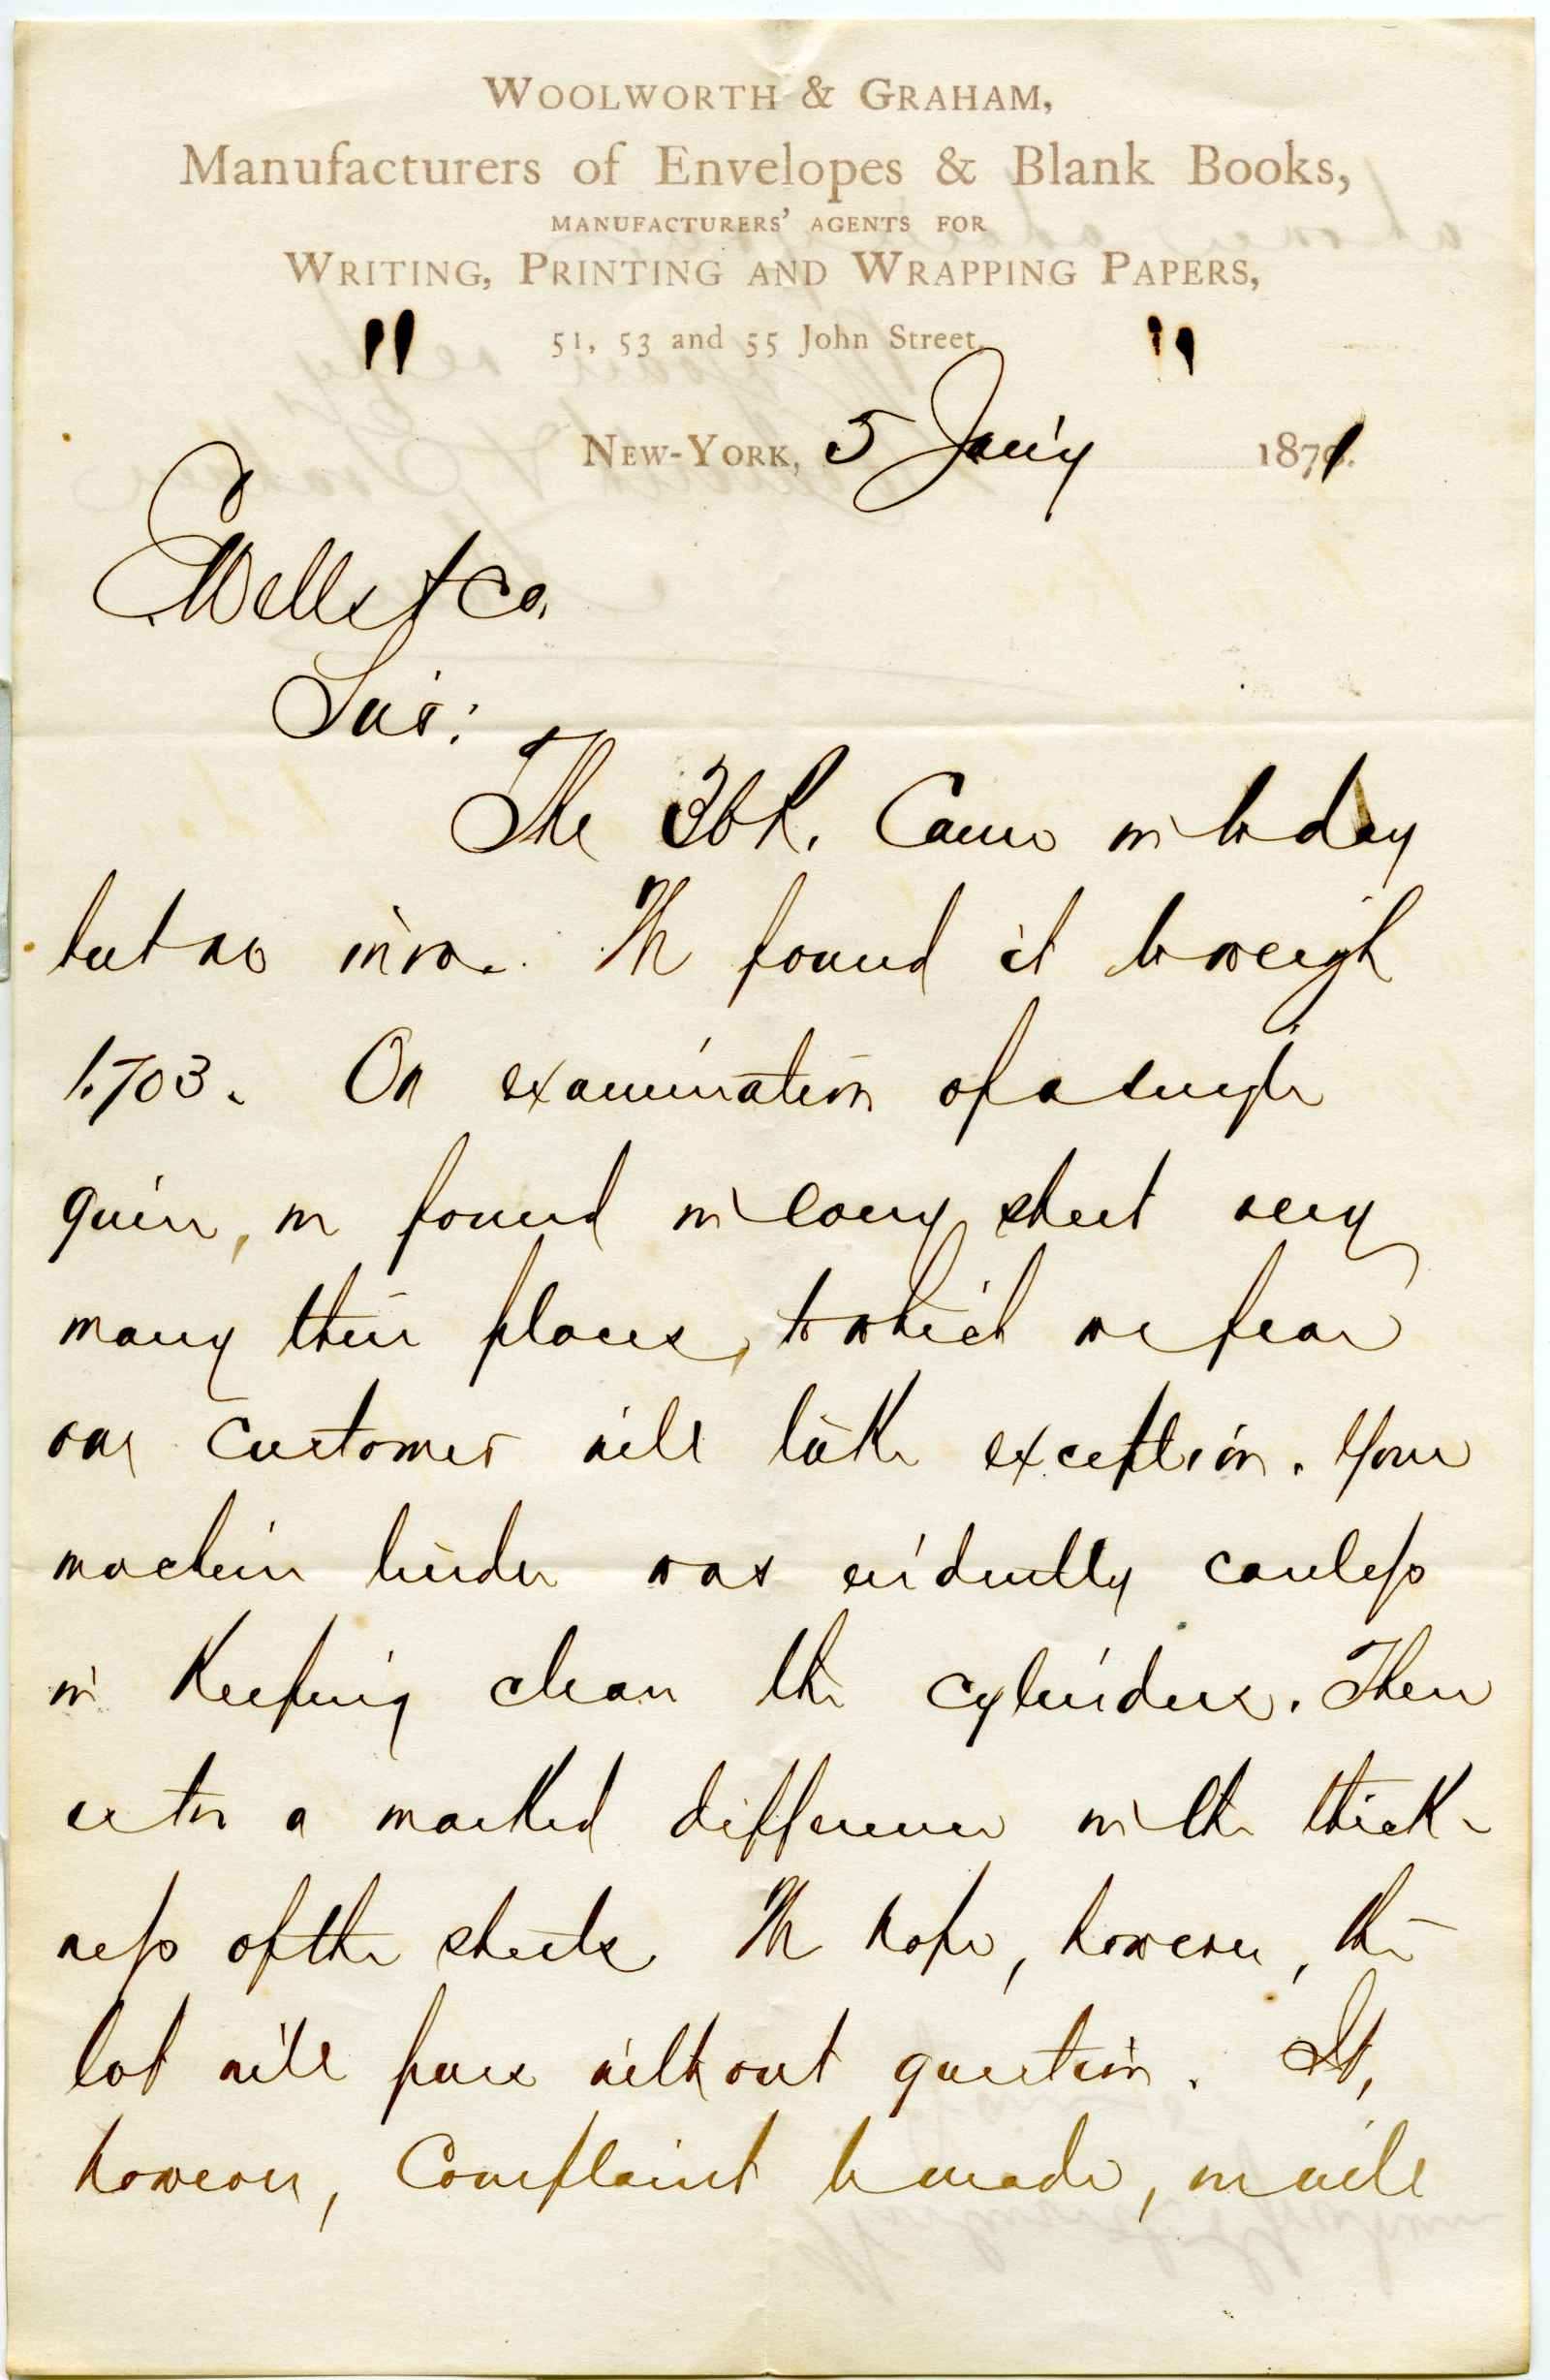 WOOLWORTH & GRAHAM,
Manufacturers of Envelopes & Blank Books,
MANUFACTURERS' AGENTS FOR
WRITING, PRINTING AND WRAPPING PAPERS,
51, 53 and 55 John Street,
NEW-YORK, 5 Jan'y 1871
Wells & Co.
Sirs:
The Came in to day
but no invo. We found it to weigh
1.703. On examination of a single
quire, we found in every sheet very
many thin places, to which we fear
our customer will take exception. Your
machine tender was evidently careless
in Keeping clean the cylinders. There
exists a marked difference in the thick-
ness of the sheets. We hope, however, the
lot will pass without question. If,
however, Complaint be made, we will